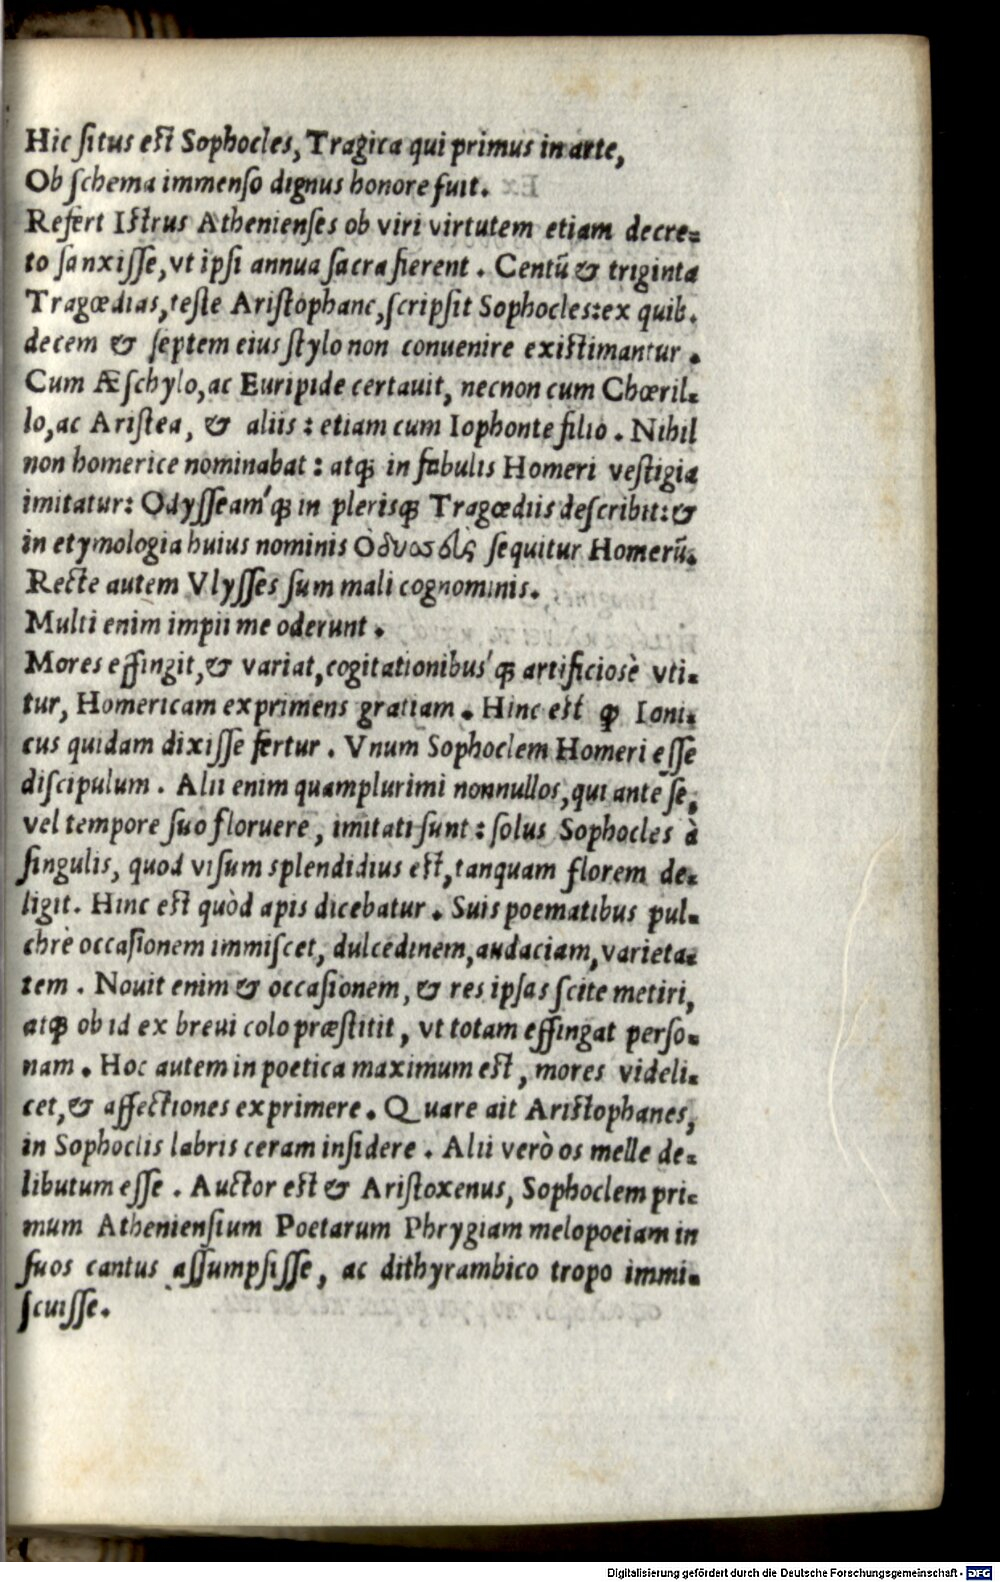 Hic ſitus eſt Sophocles, Tragica qui primus in arte,
Ob ſchema immenſo dignus honore fuit.
Refert Iſtrus Athenienſes ob viri virtutem etiam decre-
to ſanxiſſe, vt ipſi annua ſacra fierent. Centũ & triginta
Tragœdias, teſte Ariſtophane, ſcripſit Sophocles: ex quib.
decem & ſeptem eius ſtylo non conuenire exiſtimantur.
Cum Æſchylo, ac Euripide certauit, necnon cum Chœril-
lo, ac Ariſtea, & aliis: etiam cum Iophonte filio. Nihil
non homerice nominabat: atq; in fabulis Homeri veſtigia
imitatur: Odyſſeam'q; in pleriſq; Tragœdiis deſcribit: &
in etymologia huius nominis Ὀδυασδὶς ſequitur Homerũ.
Recte autem Vlyſſes ſum mali cognominis.
Multi enim impii me oderunt.
Mores effingit, & variat, cogitationibus'q; artificiosè vti-
tur, Homericam exprimens gratiam. Hinc eſt ꝙ Ioni-
cus quidam dixiſſe fertur. Vnum Sophoclem Homeri eſſe
diſcipulum. Alii enim quamplurimi nonnullos, qui ante ſe,
vel tempore ſuo floruere, imitati ſunt: ſolus Sophocles à
ſingulis, quod viſum splendidius eſt, tanquam florem de-
ligit. Hinc eſt quòd apis dicebatur. Suis poematibus pul-
chrè occaſionem immiſcet, dulcedinem, audaciam, varieta-
tem. Nouit enim & occaſionem, & res ipſas ſcite metiri,
atq; ob id ex breui colo præſtitit, vt totam effingat perſo-
nam. Hoc autem in poetica maximum eſt, mores videli-
cet, & affectiones exprimere. Quare ait Ariſtophanes,
in Sophoclis labris ceram inſidere. Alii verò os melle de-
libutum eſſe. Auctor eſt & Ariſtoxenus, Sophoclem pri-
mum Athenienſium Poetarum Phrygiam melopoeiam in
ſuos cantus aſſumpſiſſe, ac dithyrambico tropo immi-
ſcuiſſe.
Digitalisierung gefördert durch die Deutsche Forschungsgemeinschaft - DFG